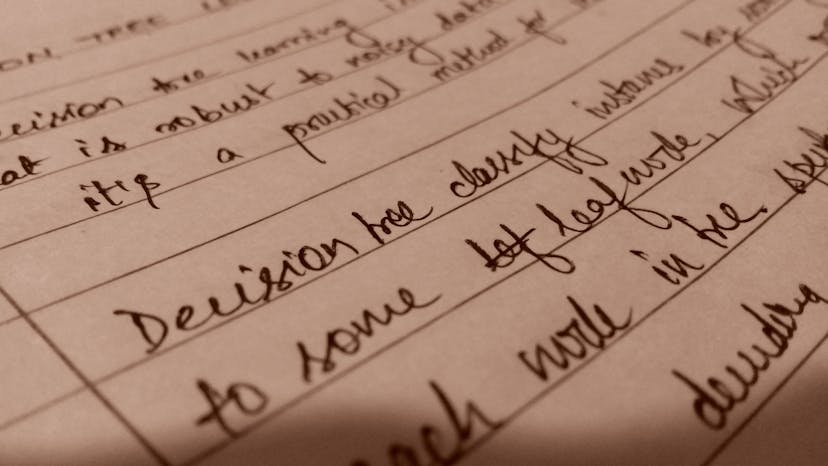 ON TREE LE
ecision tree learning i
at is robust to noisy data
it's a practical method for
Decision tree classify instances by
to some leaf node, which
each node in tree. spe